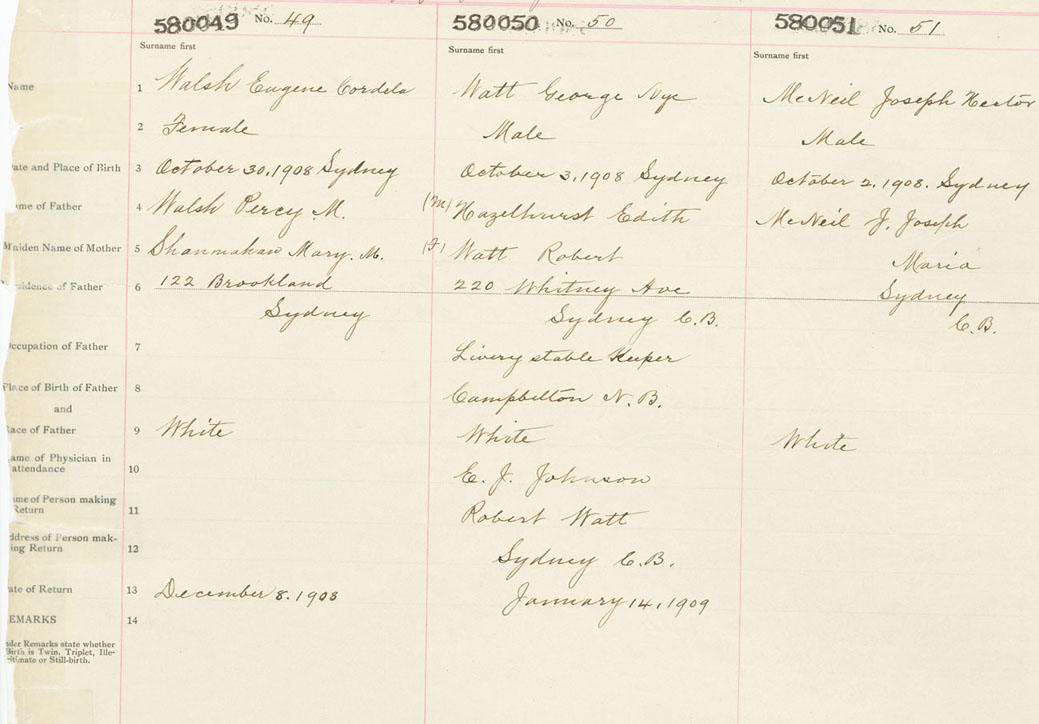 580049 No. 49
580050 No. 50
580051 No. 51
Surname first
Surname first
Surname first
Name 1 Walsh Eugene Cordela
Watt George Nye
McNeil Joseph Hector
2 Female
Male
Male
ate and Place of Birth 3 October 30, 1908 Sydney
October 3, 1908 Sydney
October 2, 1908. Sydney
me of Father 4 Walsh Percy M.
(M) Hazelhurst Edith
McNeil J. Joseph
Maiden Name of Mother 5 Shanmahan Mary. M.
(F) Watt Robert
Maria
sidence of Father 6 122 Brookland
220 Whitney Ave
Sydney
Sydney
Sydney C.B.
C.B.
ccupation of Father 7
Livery stable Keeper
Place of Birth of Father 8
Campbelton N.B.
and
Race of Father 9 White
White
White
ame of Physician in
attendance 10
E. J. Johnson
me of Person making
Return 11
Robert Watt
ddress of Person mak-
ing Return 12
Sydney C.B.
ate of Return 13 December 8. 1908
January 14, 1909
EMARKS 14
der Remarks state whether
Birth is Twin, Triplet, Ille-
gitimate or Still-birth.